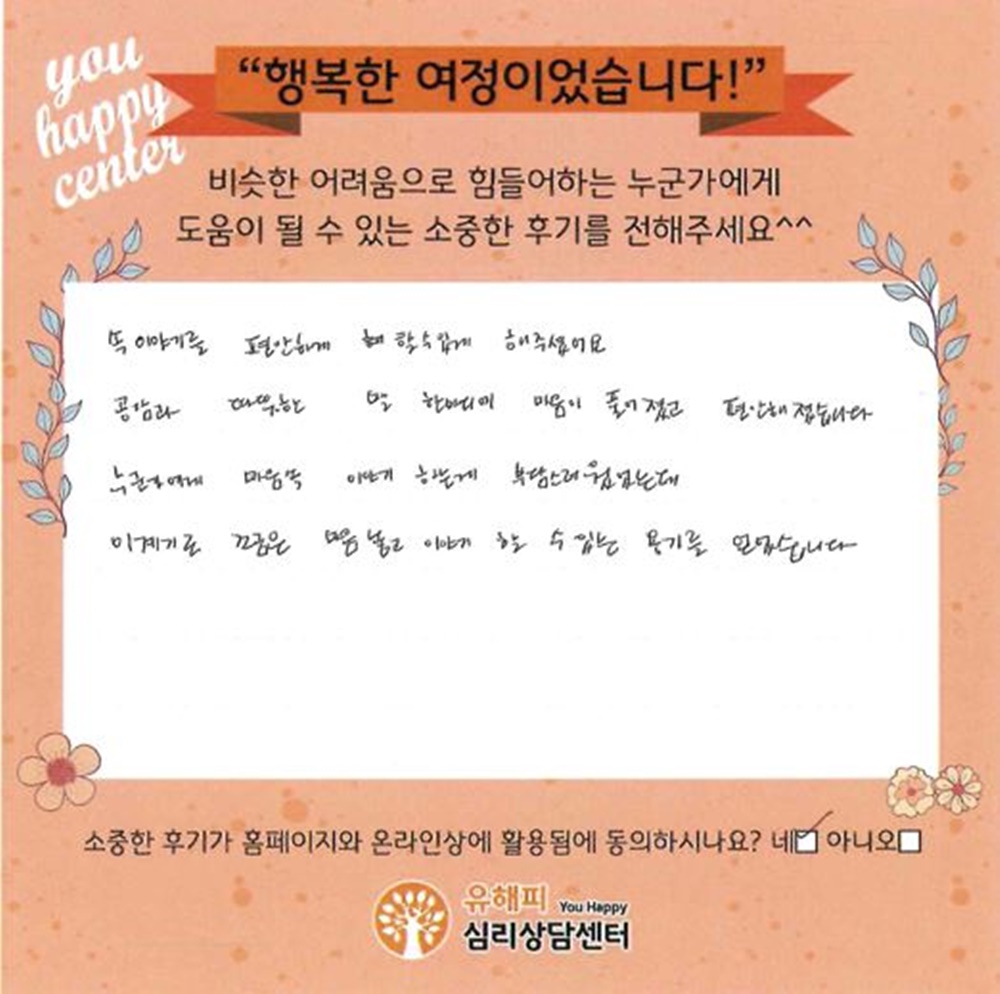 you
happy
center
“행복한 여정이었습니다!”
비슷한 어려움으로 힘들어하는 누군가에게
도움이 될 수 있는 소중한 후기를 전해주세요^^
속 이야기를 편안하게 할 수 있게 해주셨어요
공감과 따뜻한 말 한마디에 마음이 풀어졌고 편안해졌습니다
누군가에게 마음속 이야기 하는게 부담스러웠었는데
이계기로 조금은 맘 놓고 이야기 할 수 있는 용기를 얻었습니다
소중한 후기가 홈페이지와 온라인상에 활용됨에 동의하시나요? 네 아니오
유해피 You Happy
심리상담센터